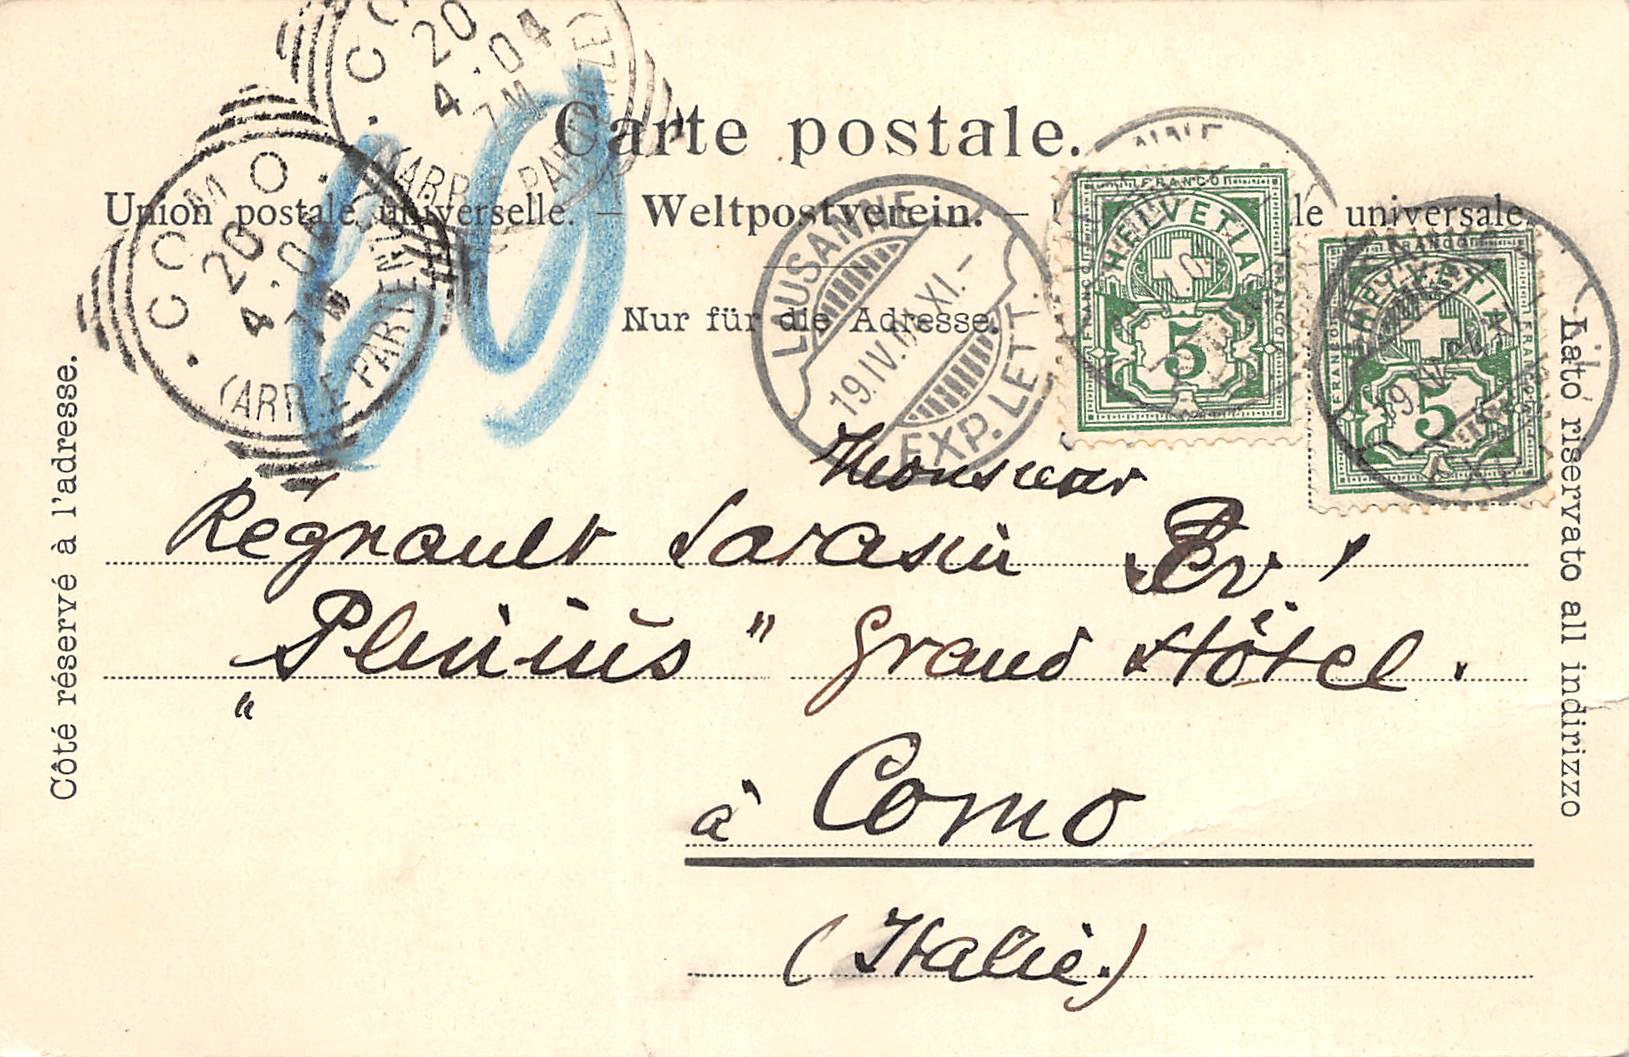 Carte postale.
Union postale universelle. — Weltpostverein. — universale.
Nur für die Adresse.
Côté réservé à l'adresse.
Lato riservato all indirizzo
COMO
20
4·04
7M
(ARR E PARTENZE)
CO
20
4·04
7M
(ARR E PARTENZE)
LAUSANNE
19.IV.04.XI.—
EXP. LETT.
FRANCO
HELVETIA
FRANCO
FRANCO
5
FRANCO
HELVETIA
FRANCO
FRANCO
5
Monsieur
Regnault Sarasin
"Plinius" Grand Hôtel.
à Como
(Italie.)